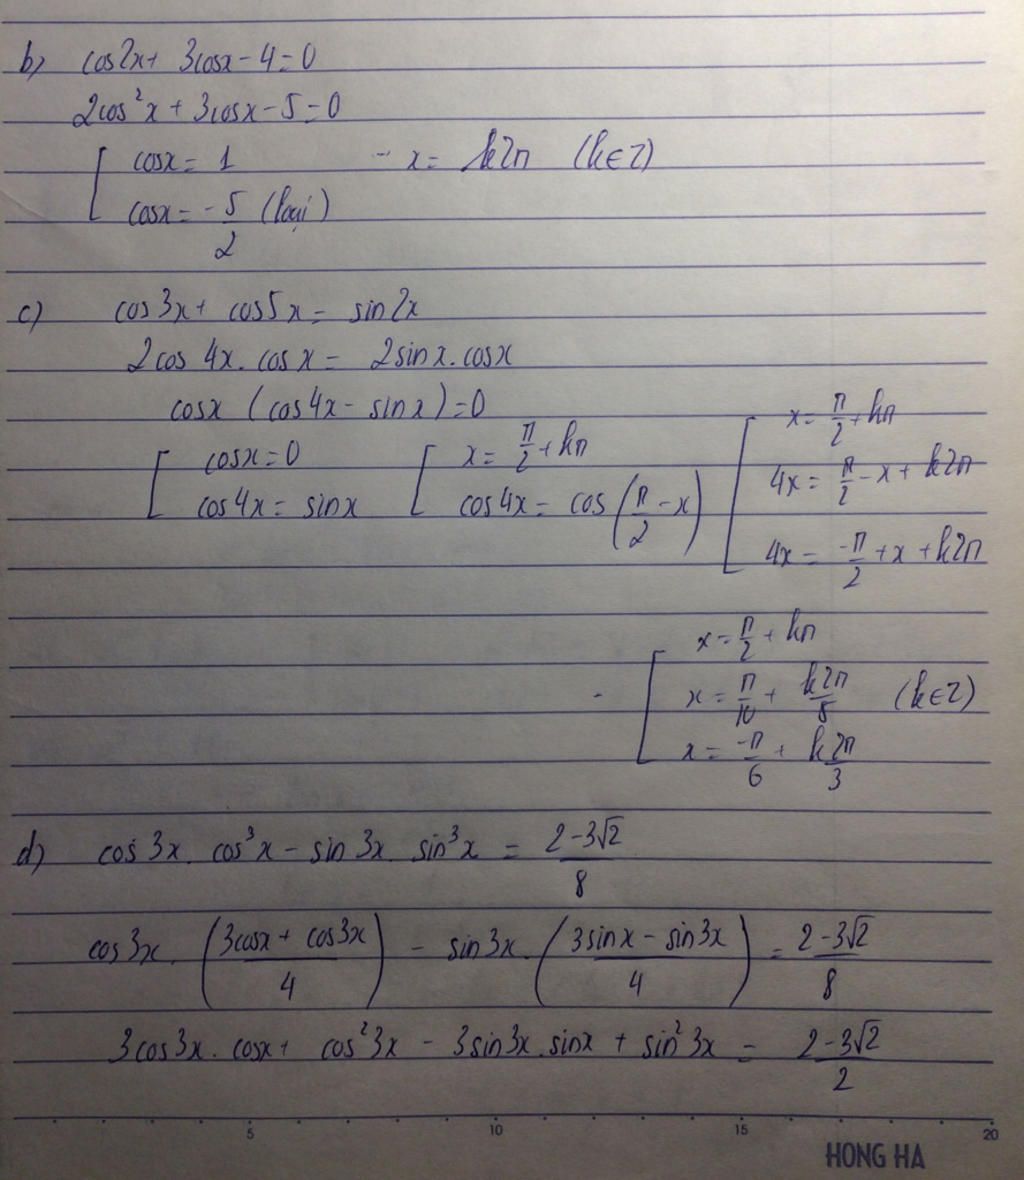 b) cos2x + 3cosx - 4 = 0
2cos²x + 3cosx - 5 = 0
[ cosx = 1 - x = k2π (k∈Z)
cosx = -5/2 (loại)
c) cos3x + cos5x = sin2x
2cos 4x. cosx = 2sinx.cosx
cosx (cos4x - sinx) = 0
[ cosx = 0
cos4x = sinx
[ x = π/2 + kπ
cos4x = cos(π/2 - x)
[ x = π/2 + kπ
4x = π/2 - x + k2π
4x = -π/2 + x + k2π
- [ x = π/2 + kπ
x = π/10 + k2π/5 (k∈Z)
x = -π/6 + k2π/3
d) cos 3x. cos³x - sin 3x. sin³x = (2-3√2)/8
cos3x. ((3cosx + cos3x)/4) - sin3x. ((3sinx - sin3x)/4) = (2-3√2)/8
3cos3x. cosx + cos²3x - 3sin3x.sinx + sin²3x = (2-3√2)/2
5 10 15 20
HONG HA